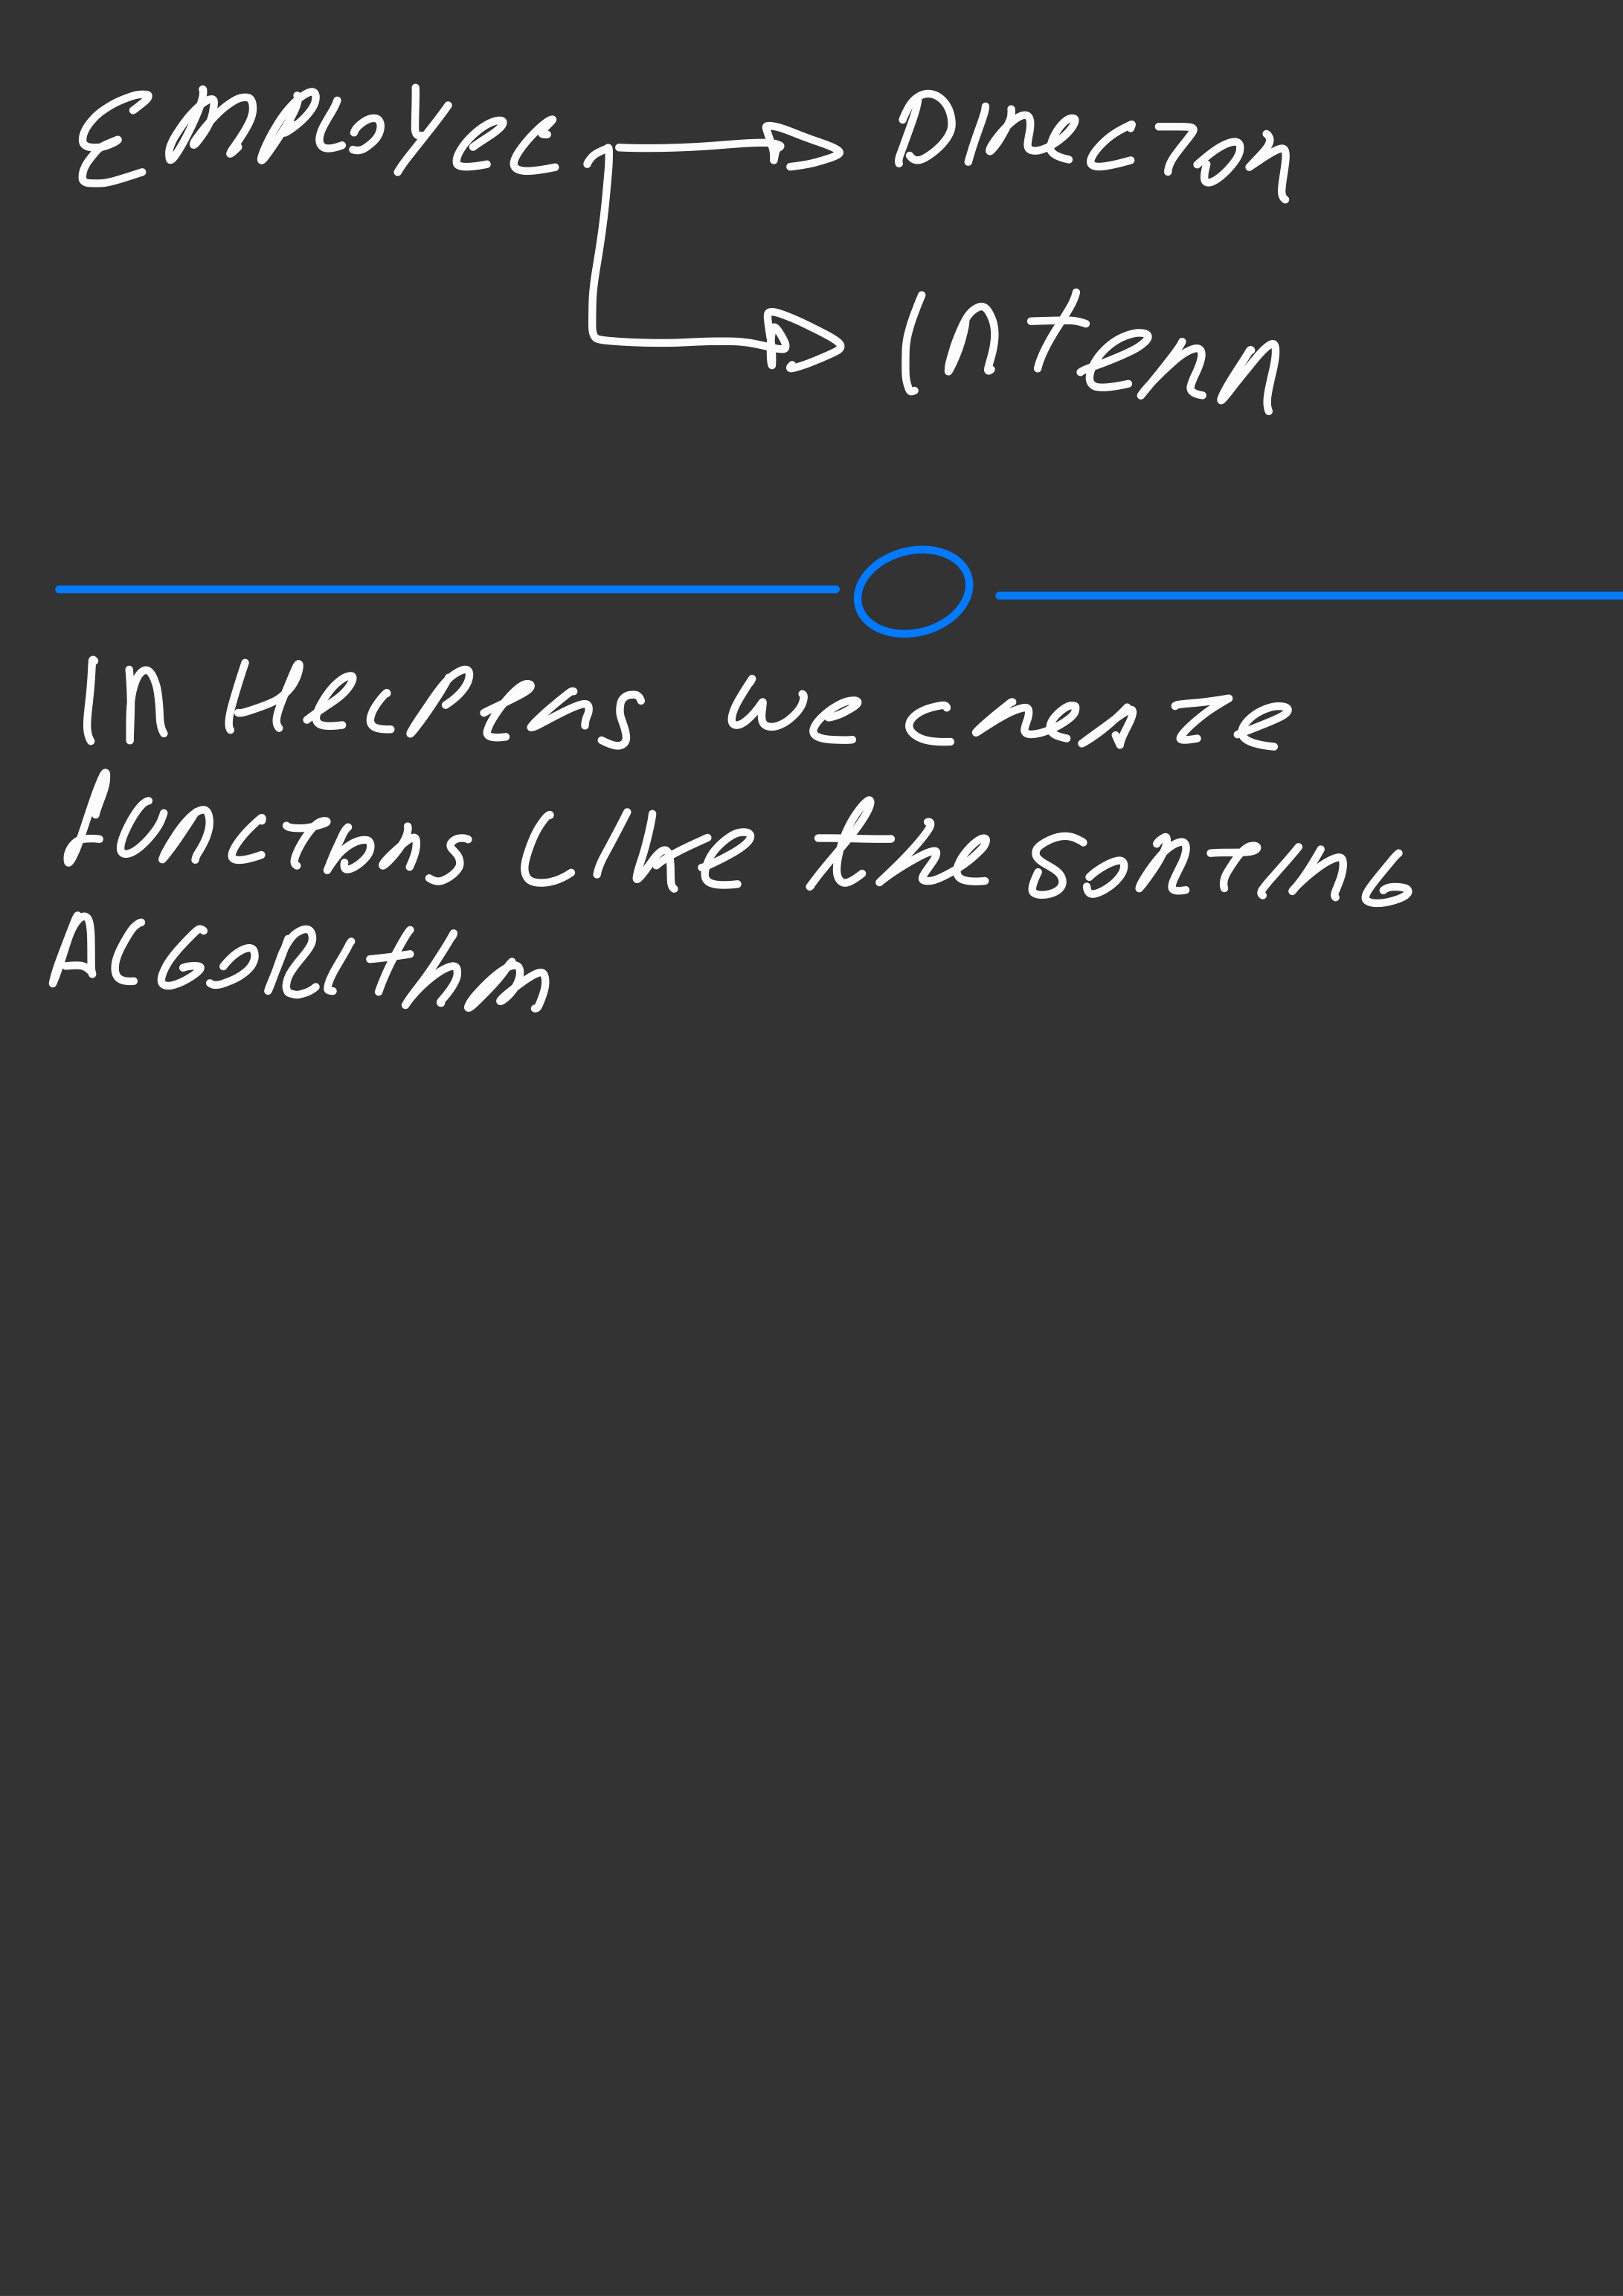 Employee Director
Intern
In Helpers we create
Functions like the sorting
Algorithm